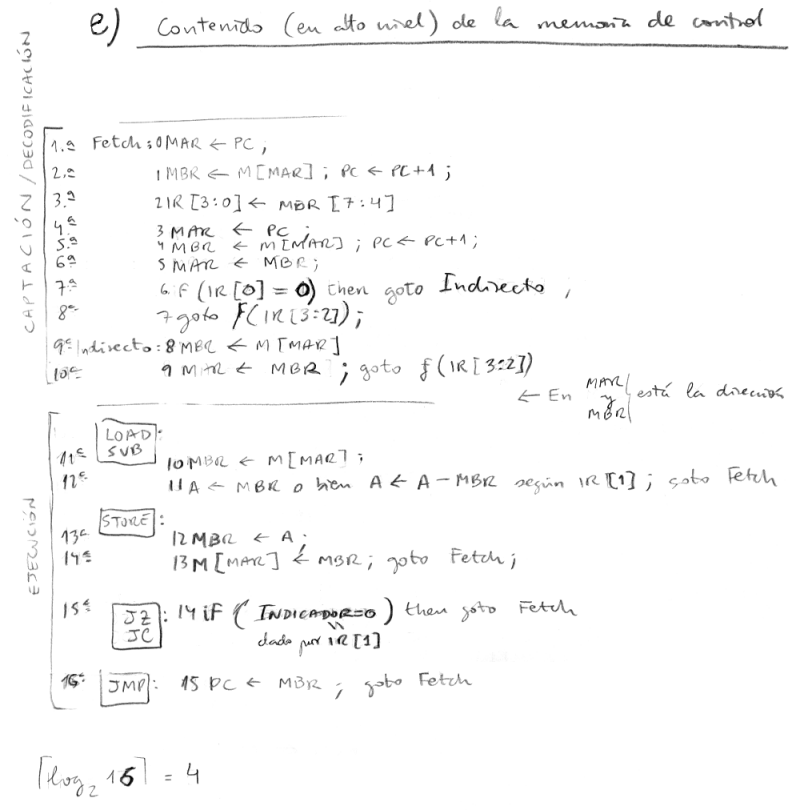 e) Contenido (en alto nivel) de la memoria de control
CAPTACIÓN / DECODIFICACIÓN
1.ª Fetch: 0 MAR ← PC ;
2.ª 1 MBR ← M[MAR] ; PC ← PC+1 ;
3.ª 2 IR [3:0] ← MBR [7:4]
4.ª 3 MAR ← PC ;
5.ª 4 MBR ← M[MAR] ; PC ← PC+1 ;
6ª 5 MAR ← MBR ;
7ª 6 if (IR[0] = 0) then goto Indirecto ;
8ª 7 goto f(IR[3:2]) ;
9ª Indirecto: 8 MBR ← M[MAR]
10ª 9 MAR ← MBR ; goto f(IR[3:2])
← En MAR y MBR está la dirección
EJECUCIÓN
LOAD
SUB :
11ª 10 MBR ← M[MAR] ;
12ª 11 A ← MBR o bien A ← A - MBR según IR[1] ; goto Fetch
STORE :
13ª 12 MBR ← A ;
14ª 13 M[MAR] ← MBR ; goto Fetch ;
15ª JZ JC : 14 if ( INDICADOR=0 ) then goto Fetch
dado por IR[1]
16ª JMP : 15 PC ← MBR ; goto Fetch
⌈log₂ 16⌉ = 4